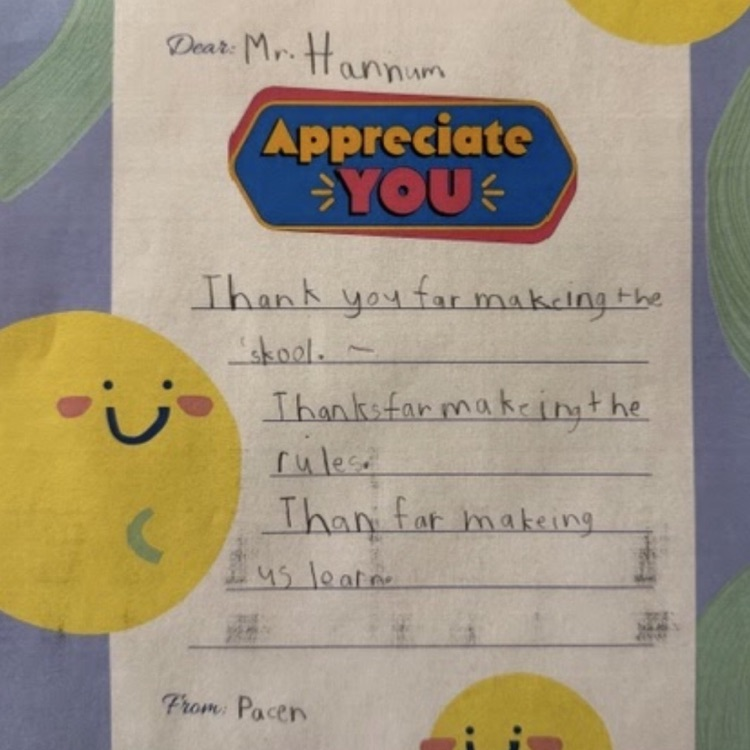 Dear: Mr. Hannum
Appreciate
YOU
Thank you far makeing the
skool.
Thanks far makeing the
rules.
Than far makeing
us learn.
From: Pacen